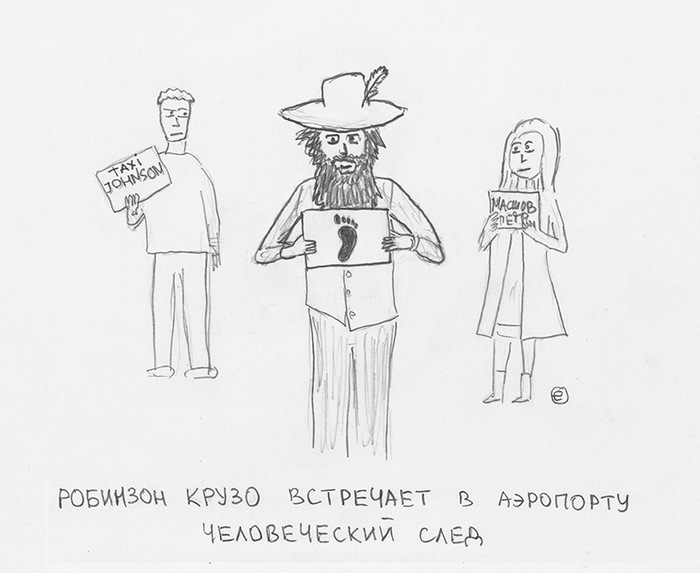 TAXI
JOHNSON
МАСЛОВ
ПЁТР
ё
РОБИНЗОН КРУЗО ВСТРЕЧАЕТ В АЭРОПОРТУ
ЧЕЛОВЕЧЕСКИЙ СЛЕД